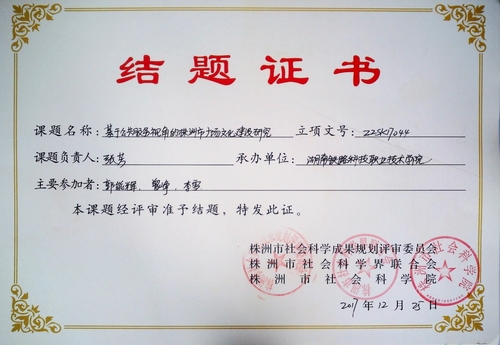 结题证书
课题名称：基于公共服务视角的株洲市广场文化建设研究 立项文号：ZZSK17044
课题负责人：张芳 承办单位：湖南铁路科技职业技术学院
主要参加者：郭能辉、 李雪
本课题经评审准予结题，特发此证。
株洲市社会科学成果规划评审委员会
株洲市社会科学界联合会
株洲市社会科学院
2017年12月25日